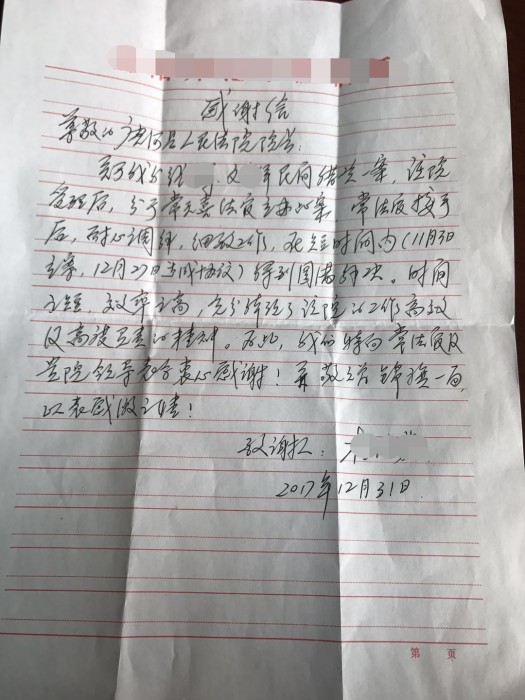 感谢信
尊敬的广河县人民法院院长：
关于我公司经 民间借贷一案，该院
受理后，分于常无委法官主办此案。常法官接手
后，耐心调解，细致工作，在短时间内（11月3日
立案，12月27日达成协议）得到圆满解决。时间
之短，效率之高，充分体现了该院的工作高效
及高度负责的精神。为此，我们特向常法官及
贵院领导表示衷心感谢！并敬送锦旗一面，
以表感激之情！
致谢人：
2017年12月31日
第 页